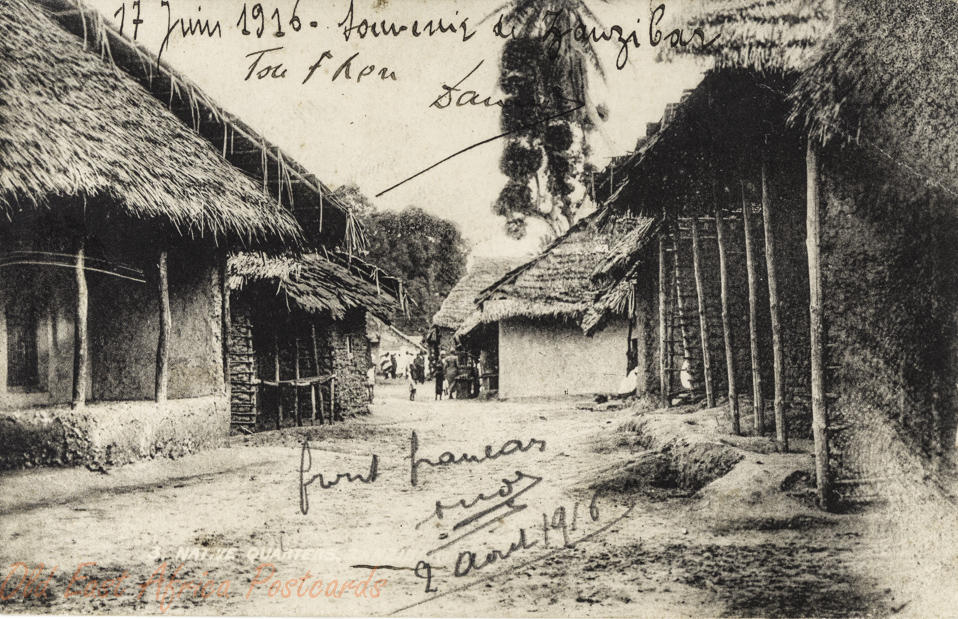 17 Juin 1916 - Souvenir de Zanzibar
front francas
2 Août 1916
3. NATIVE QUARTERS.
Old East Africa Postcards